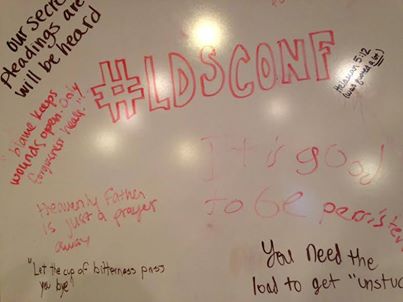 our secret
Pleadings are
will be heard
#LDSCONF
Helaman 5:12
"blame keeps
wounds open. Only
forgiveness heals."
It is good
to be persistent
Heavenly Father
is just a prayer
away
"Let the cup of bitterness pass
you bye"
You Need the
load to get "unstuc